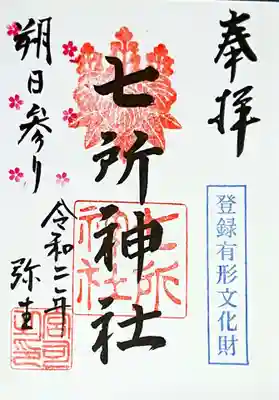 奉拝
登録有形文化財
七所神社
七所神社
朔日参り
令和二年
弥生
宮司之印